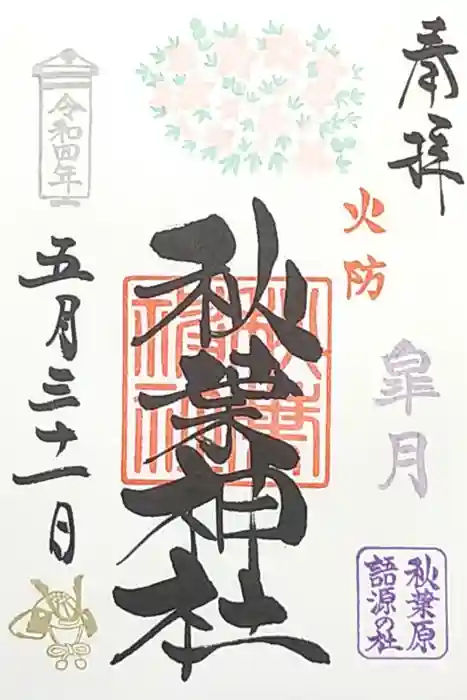 奉拝
火防
皐月
秋葉原
語源の社
秋葉神社
令和四年
五月三十一日